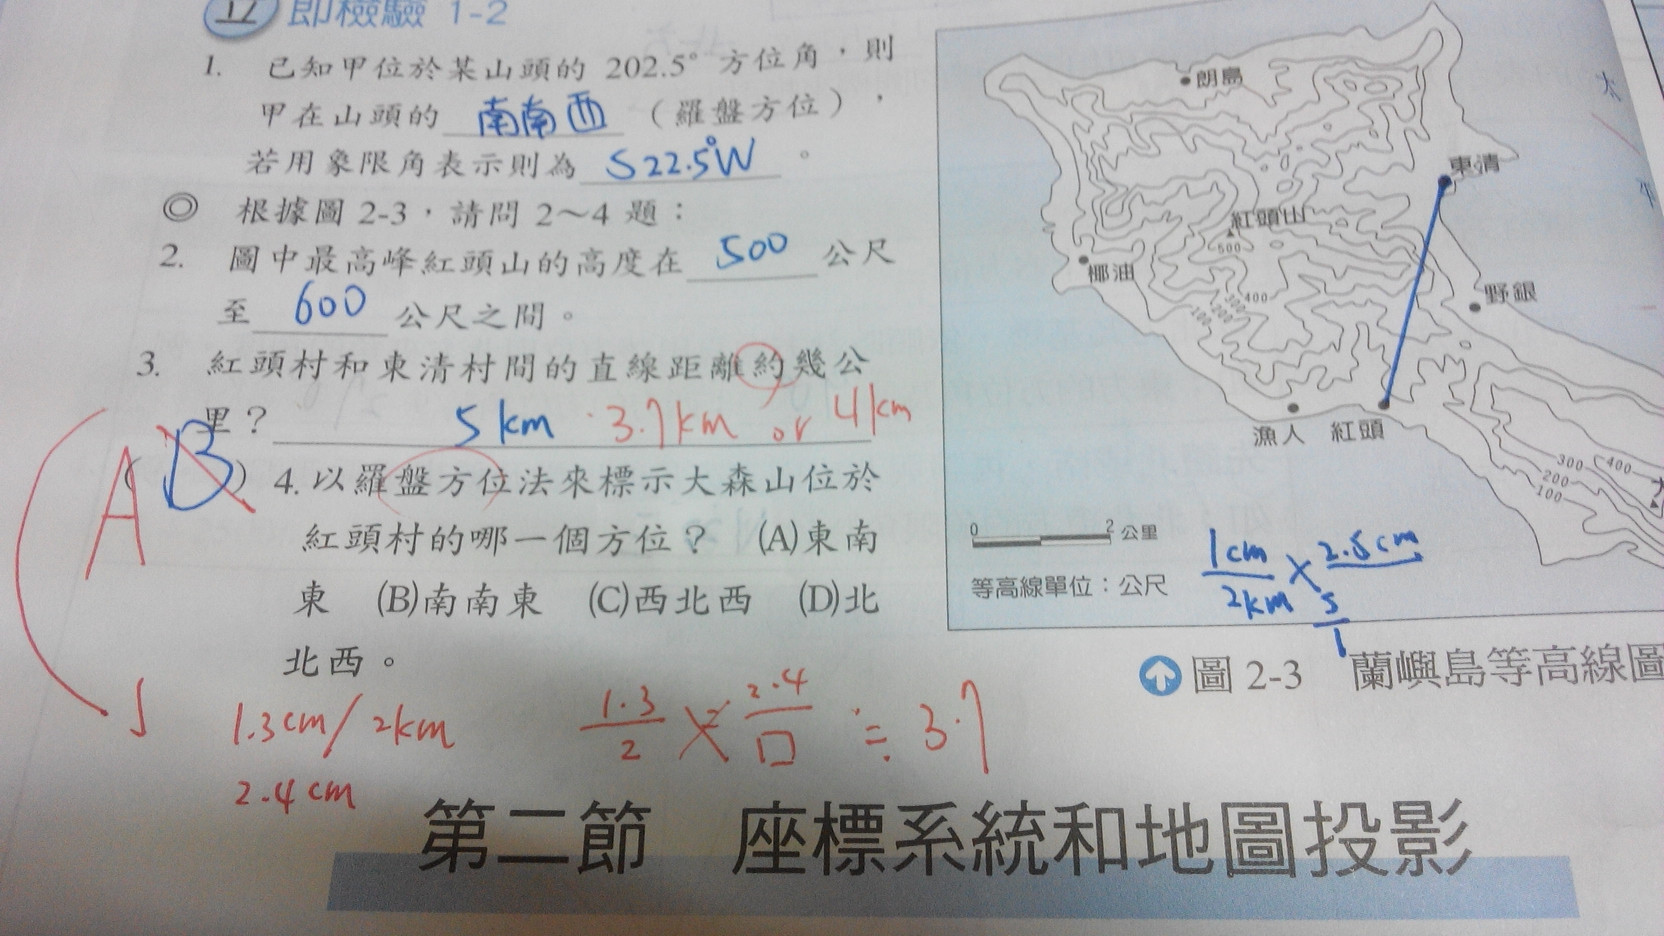 即檢驗 1-2
1. 已知甲位於某山頭的 202.5° 方位角，則
甲在山頭的 南南西 （羅盤方位），
若用象限角表示則為 S22.5°W 。
◎ 根據圖 2-3，請問 2～4 題：
2. 圖中最高峰紅頭山的高度在 500 公尺
至 600 公尺之間。
3. 紅頭村和東清村間的直線距離約幾公
里？ 5 km 3.7km or 4km
( B ) 4. 以羅盤方位法來標示大森山位於
A
紅頭村的哪一個方位？ (A)東南
東 (B)南南東 (C)西北西 (D)北
北西。
1.3cm/2km
2.4cm
1.3/2 × 2.4/□ ≒ 3.7
朗島
東清
紅頭山
500
椰油
野銀
400
300
200
100
漁人 紅頭
300 400
200
100
0 2 公里
等高線單位：公尺
1cm/2km × 2.5cm
5
1
圖 2-3 蘭嶼島等高線圖
第二節 座標系統和地圖投影